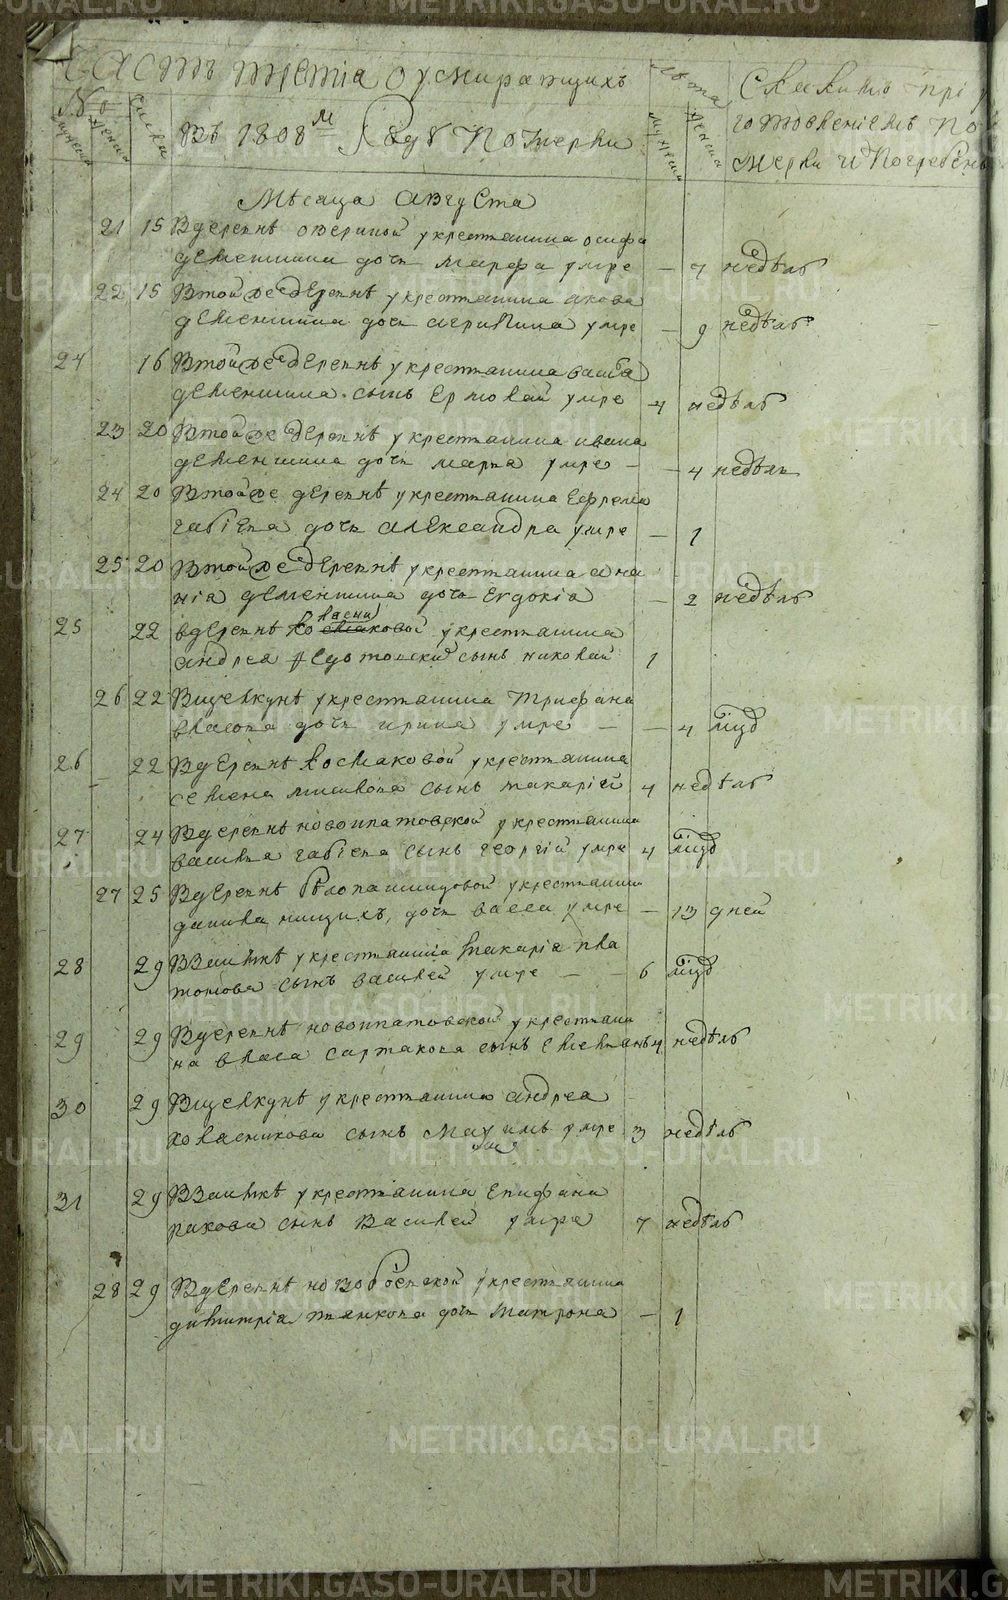 Часть третiа о умирающихъ
№о
мужеска
женска
числа
Въ 1808м году померли
лѣта
мужеска
женска
с какимъ прiу
готовленiемъ по
мерли и погребены
Мѣсаца августа
21 15 Вдеревнѣ овериной укрестьянина осифа
деменшина дочь марфа умре — 7 недѣль
22 15 Втойже деревнѣ укрестьянина акова
деменшина дочь агрипина умре — 9 недѣль
24 16 Втойже деревнѣ укрестьянина
деменшина сынъ Ермолай умре 4 недѣль
23 20 Втойже деревнѣ укрестьянина ивана
деменшина дочь марѳа умре — — 4 недѣли
24 20 Втойже деревнѣ укрестьянина Ефрема
дочь александра умре — 1
25 20 Втойже деревнѣ укрестьянина ана
нiа деменшина дочь Евдокiа — 2 недѣль
25 22 вдеревнѣ укрестьянина
андреа сынъ николай 1
26 22 Вщелкунѣ укрестьянина трифана
власова дочь ирина умре — — 4 мцѣ
26 22 Вдеревнѣ космаковой укрестьянина
семена сынъ макарiей 4 недѣль
27 24 Вдеревнѣ новоипатовской укрестьянина
василиа сынъ георгiй умре 4 мцѣ
27 25 Вдеревнѣ укрестьянина
данила нищихъ, дочь васса умре — 13 дней
28 29 Взаимкѣ укрестьянина макарiа пла
тонова сынъ василей умре — — 6 мцѣ
29 29 Вдеревнѣ новоипатовской укрестьяни
на власа сартакова сынъ 4 недѣль
30 29 Вщелкунѣ укрестьянина андреа
колясникова сынъ умре 3 недѣль
31 29 Взаимкѣ укрестьянина Епифана
ракова сынъ Василей умре 7 недѣль
28 29 Вдеревнѣ укрестьянина
димитрiа дочь матрона — 1
METRIKI.GASO-URAL.RU